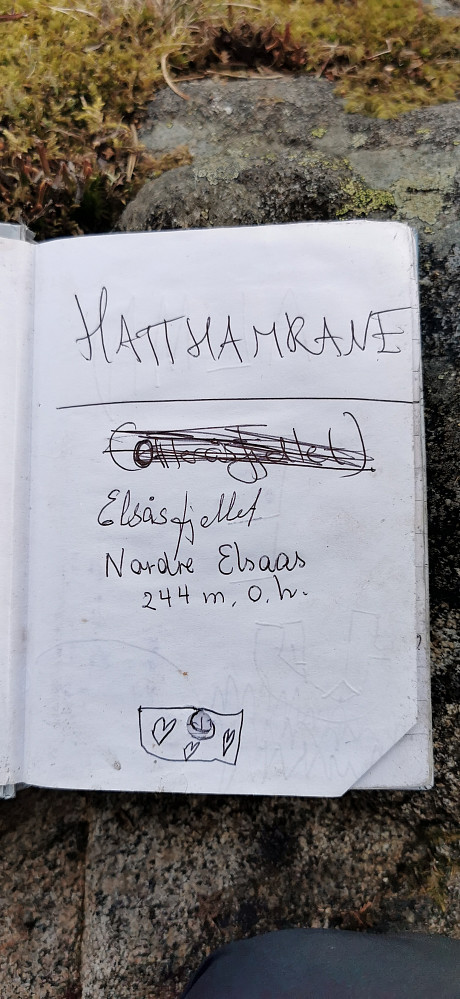 HATTHAMRANE
Elsåsfjellet
Nordre Elsaas
244 m. o. h.